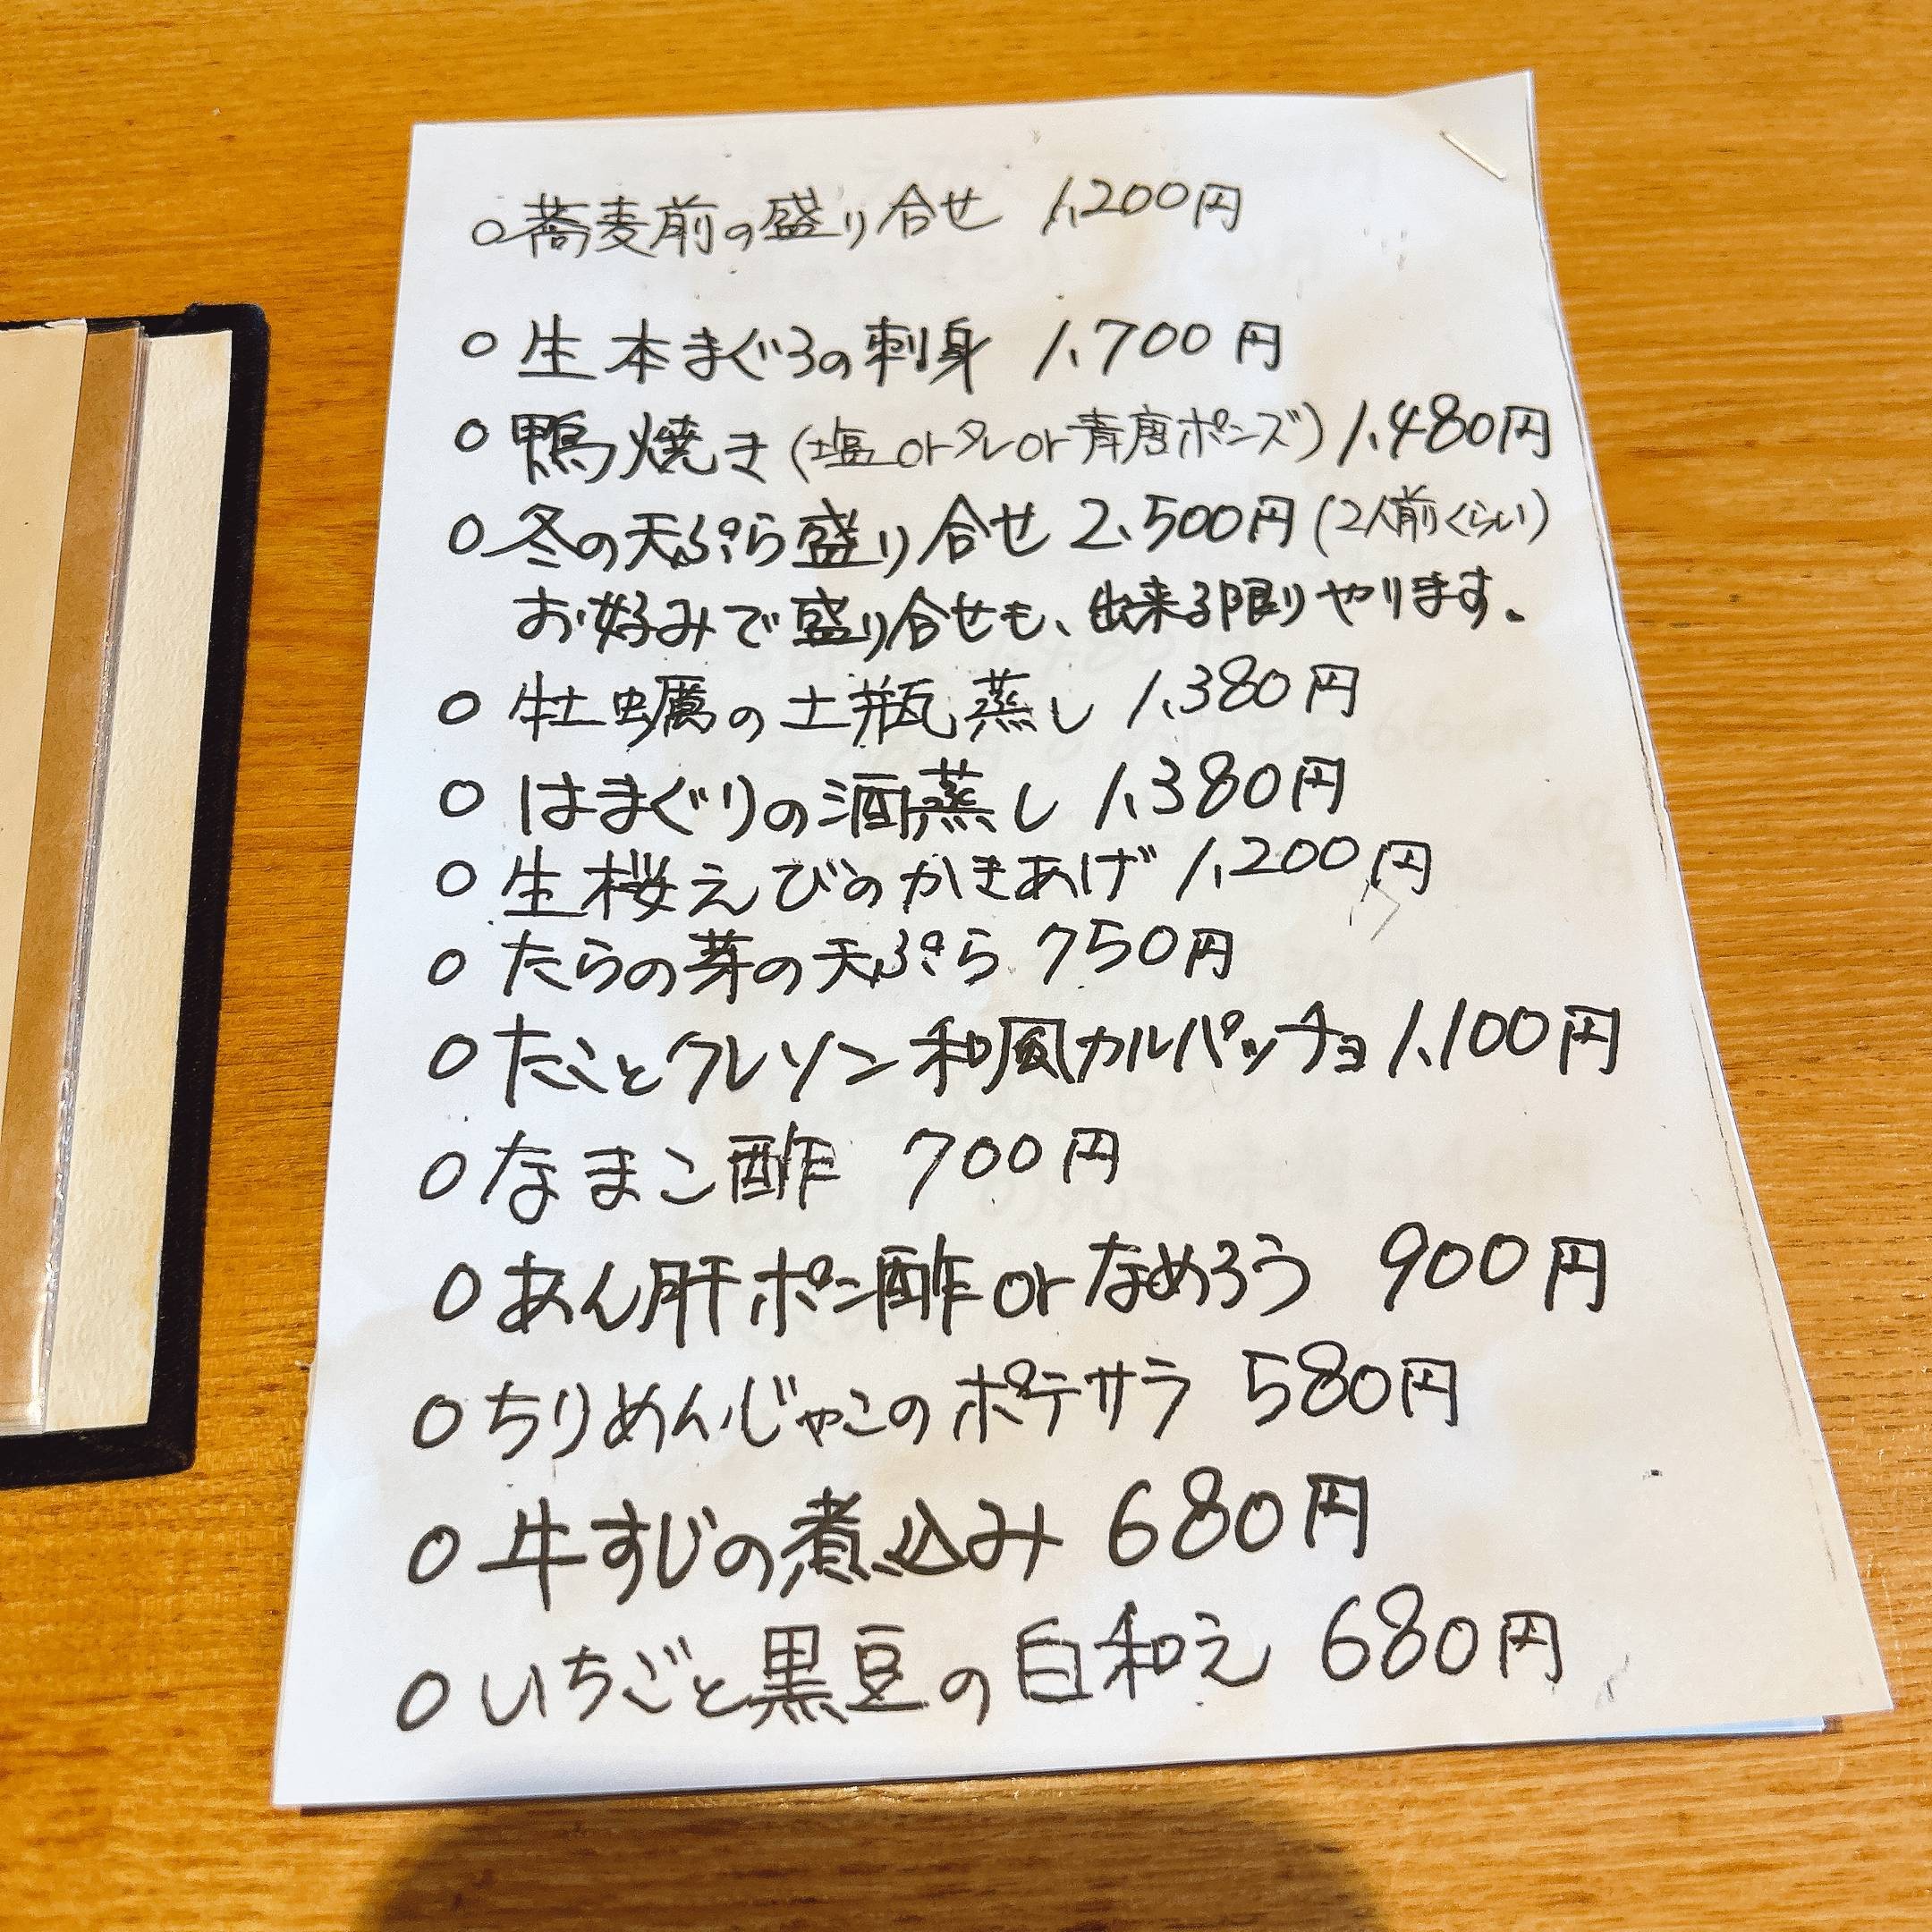 ○蕎麦前の盛り合せ 1,200円
○生本まぐろの刺身 1,700円
○鴨焼き(塩orタレor青唐ポンズ)1,480円
○冬の天ぷら盛り合せ 2,500円(2人前くらい)
お好みで盛り合せも、出来る限りやります。
○牡蠣の土瓶蒸し 1,380円
○はまぐりの酒蒸し 1,380円
○生桜えびのかきあげ 1,200円
○たらの芽の天ぷら 750円
○たことクレソン和風カルパッチョ 1,100円
○なまこ酢 700円
○あん肝ポン酢orなめろう 900円
○ちりめんじゃこのポテサラ 580円
○牛すじの煮込み 680円
○いちごと黒豆の白和え 680円